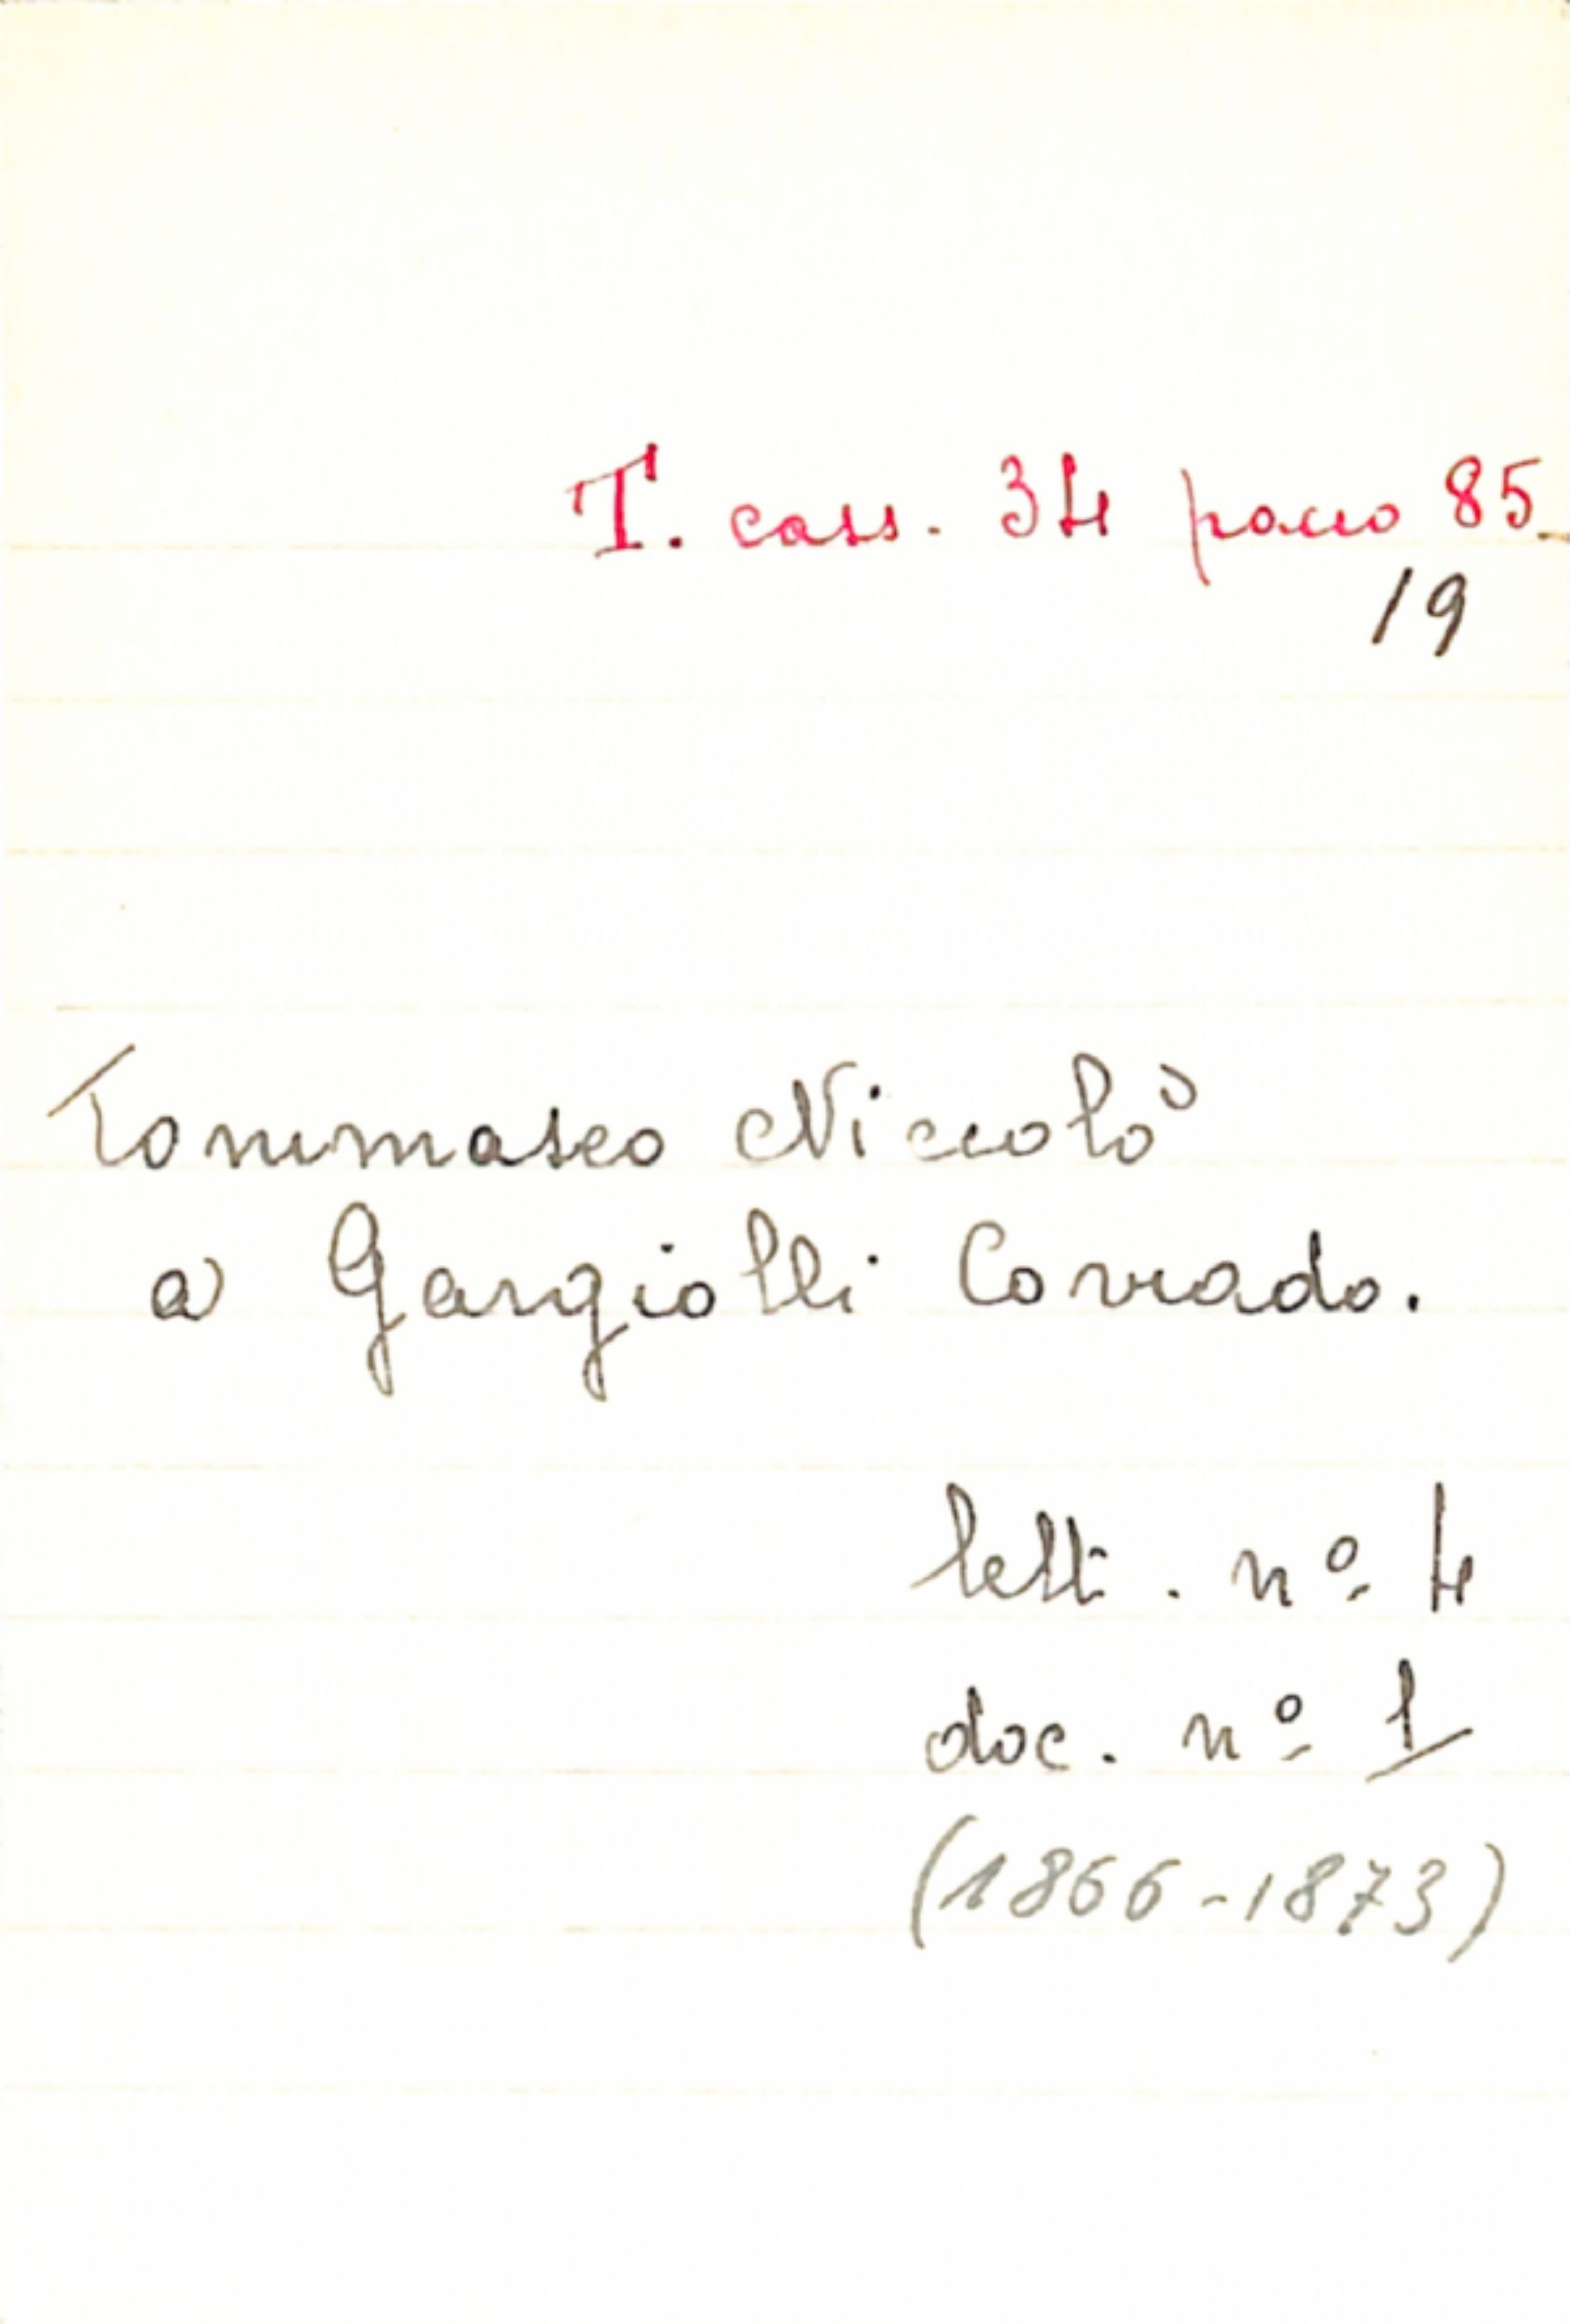 T. cass. 34 pacco 85.
19
Tommaseo Niccolò
a Gargiolli Corrado.
lett. nº 4
doc. nº 1
(1866-1873)